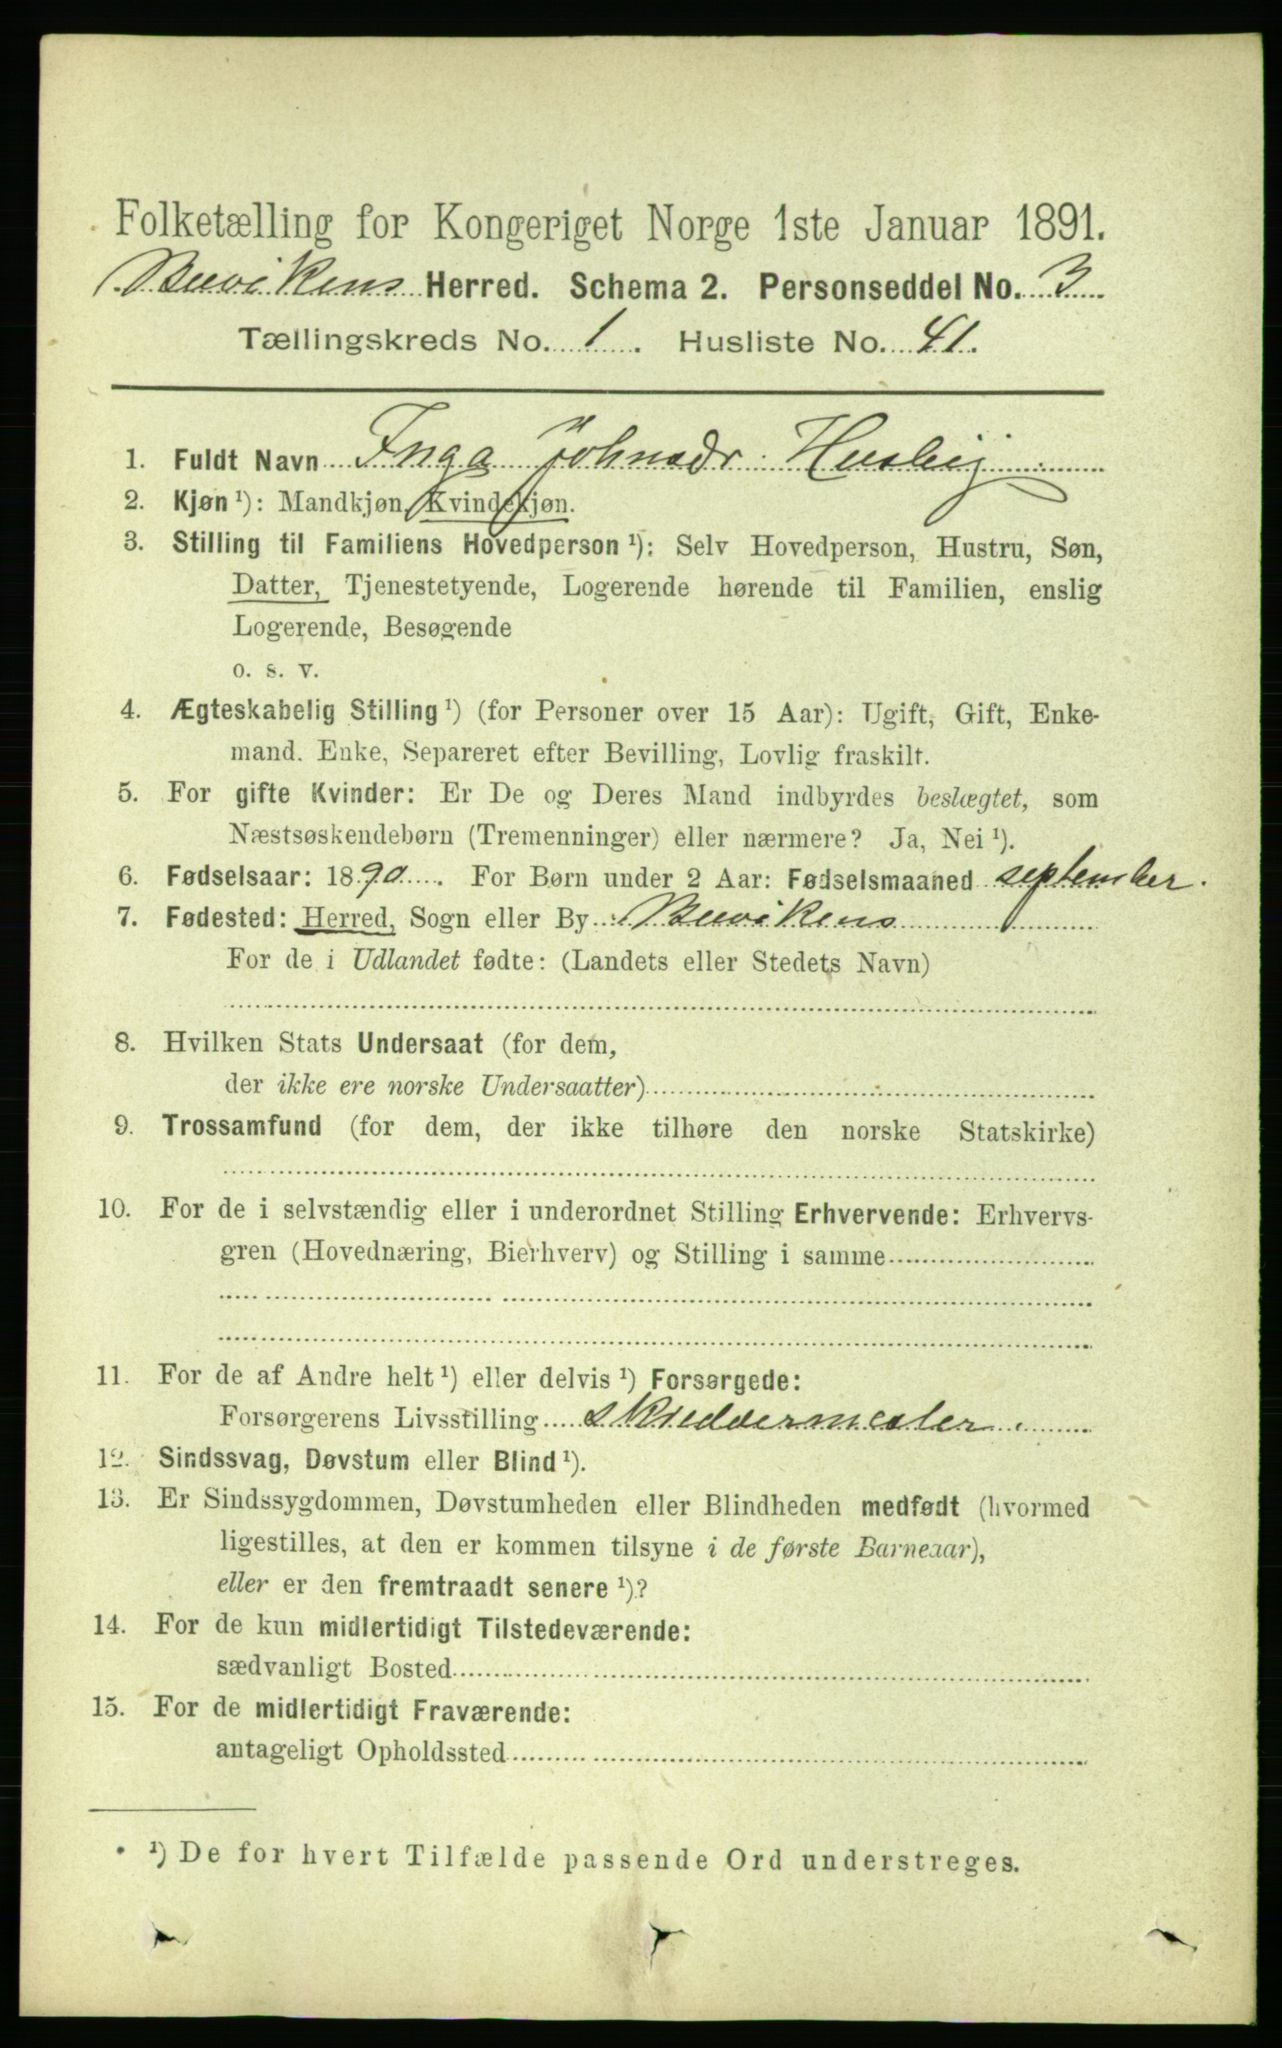 Folketælling for Kongeriget Norge 1ste Januar 1891.
Buvikens Herred. Schema 2. Personseddel No. 3
Tællingskreds No. 1. Husliste No. 41.
1. Fuldt Navn Inga Johnsdr. Husby
2. Kjøn ¹): Mandkjøn, Kvindekjøn.
3. Stilling til Familiens Hovedperson ¹): Selv Hovedperson, Hustru, Søn,
Datter, Tjenestetyende, Logerende hørende til Familien, enslig
Logerende, Besøgende
o. s. v.
4. Ægteskabelig Stilling ¹) (for Personer over 15 Aar): Ugift, Gift, Enke-
mand. Enke, Separeret efter Bevilling, Lovlig fraskilt.
5. For gifte Kvinder: Er De og Deres Mand indbyrdes beslægtet, som
Næstsøskendebørn (Tremenninger) eller nærmere? Ja, Nei ¹).
6. Fødselsaar: 1890. For Børn under 2 Aar: Fødselsmaaned september.
7. Fødested: Herred, Sogn eller By: Buvikens
For de i Udlandet fødte: (Landets eller Stedets Navn)
8. Hvilken Stats Undersaat (for dem,
der ikke ere norske Undersaatter)
9. Trossamfund (for dem, der ikke tilhøre den norske Statskirke)
10. For de i selvstændig eller i underordnet Stilling Erhvervende: Erhvervs-
gren (Hovednæring, Bierhverv) og Stilling i samme
11. For de af Andre helt ¹) eller delvis ¹) Forsørgede:
Forsørgerens Livsstilling skreddermester.
12. Sindssvag, Døvstum eller Blind ¹).
13. Er Sindssygdommen, Døvstumheden eller Blindheden medfødt (hvormed
ligestilles, at den er kommen tilsyne i de første Barneaar),
eller er den fremtraadt senere ¹)?
14. For de kun midlertidigt Tilstedeværende:
sædvanligt Bosted
15. For de midlertidigt Fraværende:
antageligt Opholdssted
¹) De for hvert Tilfælde passende Ord understreges.